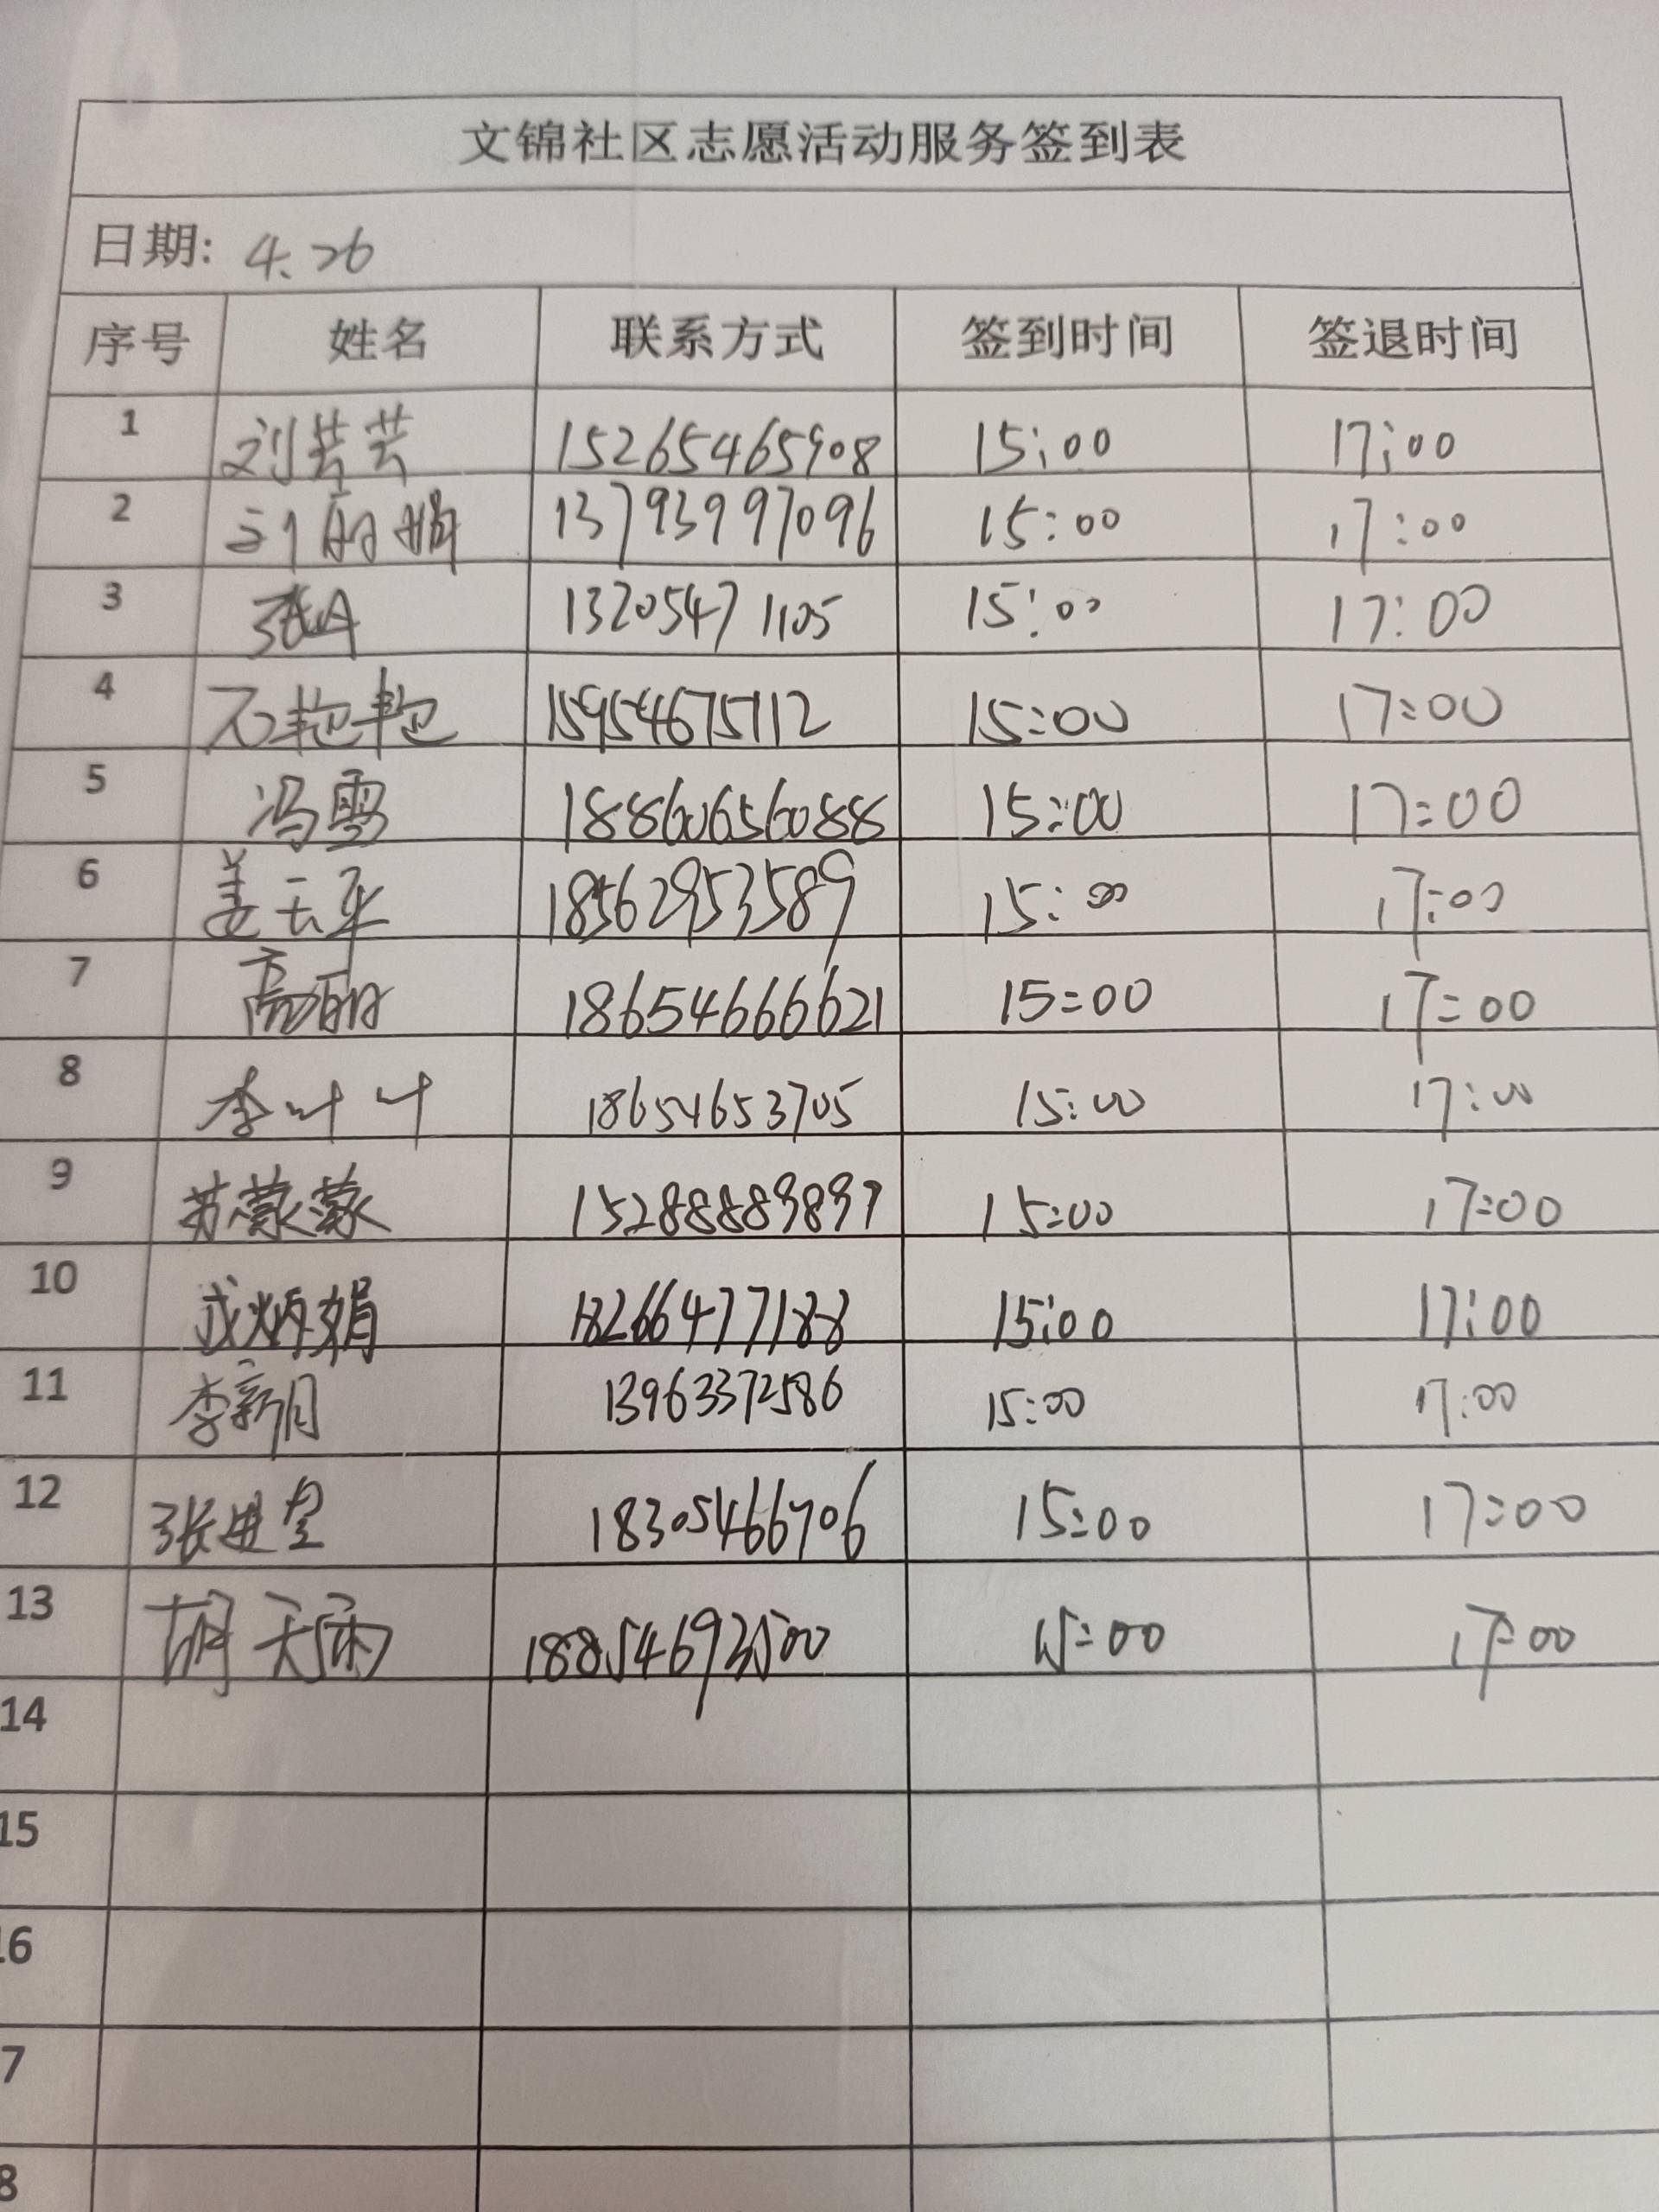 文锦社区志愿活动服务签到表
日期: 4.26
序号 姓名 联系方式 签到时间 签退时间
1 刘芸芸 15265465908 15:00 17:00
2 刘丽娟 13793997096 15:00 17:00
3 张丹 13205471105 15:00 17:00
4 石艳艳 15954675712 15:00 17:00
5 冯雪 18860656088 15:00 17:00
6 姜云平 18562953589 15:00 17:00
7 高丽 18654666621 15:00 17:00
8 李叶叶 18654653705 15:00 17:00
9 苏蒙蒙 15288889897 15:00 17:00
10 成炳娟 18266477188 15:00 17:00
11 李新月 13963372586 15:00 17:00
12 张进宝 18305466706 15:00 17:00
13 胡天雨 18854693500 15:00 17:00
14
15
16
7
8